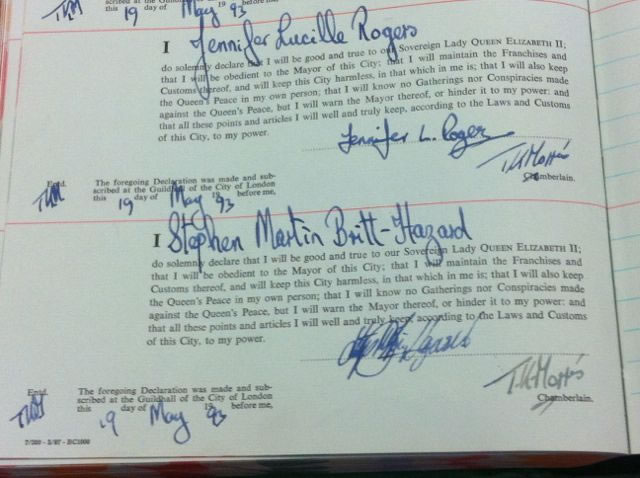 TKM scribed at the Guildhall of the City of London
this 19 day of May 19 93 before me,
I Jennifer Lucille Rogers
do solemnly declare that I will be good and true to our Sovereign Lady QUEEN ELIZABETH II;
that I will be obedient to the Mayor of this City; that I will maintain the Franchises and
Customs thereof, and will keep this City harmless, in that which in me is; that I will also keep
the Queen's Peace in my own person; that I will know no Gatherings nor Conspiracies made
against the Queen's Peace, but I will warn the Mayor thereof, or hinder it to my power: and
that all these points and articles I will well and truly keep, according to the Laws and Customs
of this City, to my power.
Jennifer L. Rogers
TKMorris
Chamberlain.
Entd. The foregoing Declaration was made and sub-
TKM scribed at the Guildhall of the City of London
this 19 day of May 19 93 before me,
I Stephen Martin Britt-Hazard
do solemnly declare that I will be good and true to our Sovereign Lady QUEEN ELIZABETH II;
that I will be obedient to the Mayor of this City; that I will maintain the Franchises and
Customs thereof, and will keep this City harmless, in that which in me is; that I will also keep
the Queen's Peace in my own person; that I will know no Gatherings nor Conspiracies made
against the Queen's Peace, but I will warn the Mayor thereof, or hinder it to my power: and
that all these points and articles I will well and truly keep, according to the Laws and Customs
of this City, to my power.
TKMorris
Chamberlain.
Entd. The foregoing Declaration was made and sub-
TKM scribed at the Guildhall of the City of London
this 19 day of May 19 93 before me,